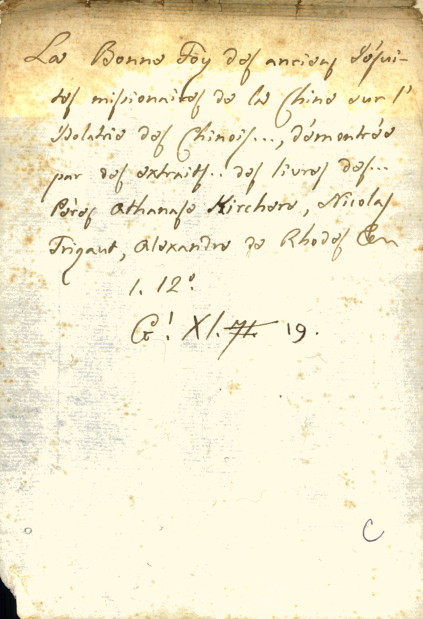 La Bonne Foy des anciens Jésui-
tes missionaires de la Chine sur l'
Idolatrie des Chinois..., démontrée
par des extraits.. des livres des...
Péres Athanase Kirchere, Nicolas
Trigaut, Alexandre de Rhodes &c
1. 12°.
G! XI. 19.
C